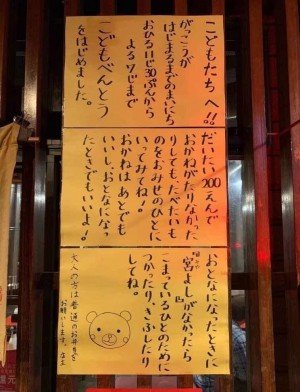 こどもたちへ!!
がっこうが
はじまるまでのまいにち
おひる11じ30ぷんから
よる9じまで
こどもべんとう
をはじめました。
だいたい200えんで
おかねがたりなかった
りしても、たべたいも
のをおみせのひとに
いってみてね!
おかねはあとでも
いいし、おとなになっ
たときでもいいよ!
おとなになったときに
宮よしがなかったら
こまっているひとのために
つかったり、きふしたり
してね。
大人の方は普通のお弁当を
お願いします。店主